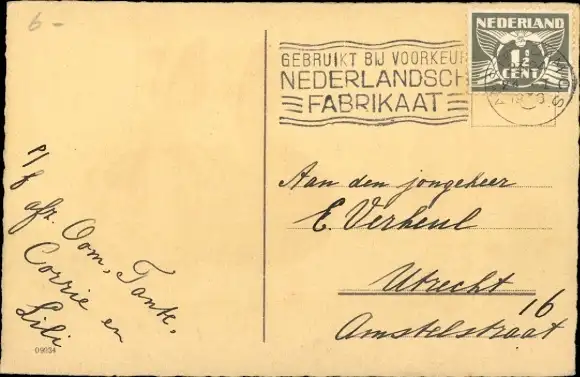 6-
GEBRUIKT BIJ VOORKEUR
NEDERLANDSCH
FABRIKAAT
NEDERLAND
1½
CENT
Aan den jongeheer
E. Verheul
Utrecht
16
Amstelstraat
p/f
afz. Oom, Tante,
Corrie en
Lili
09934